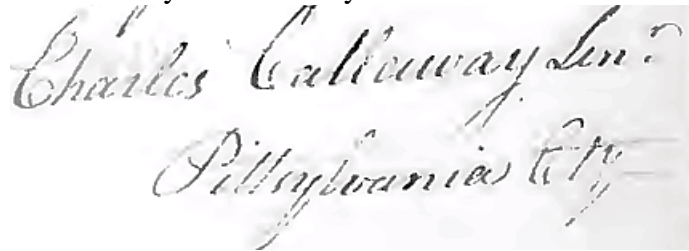 Charles Callaway Senr.
Pittsylvania Cty